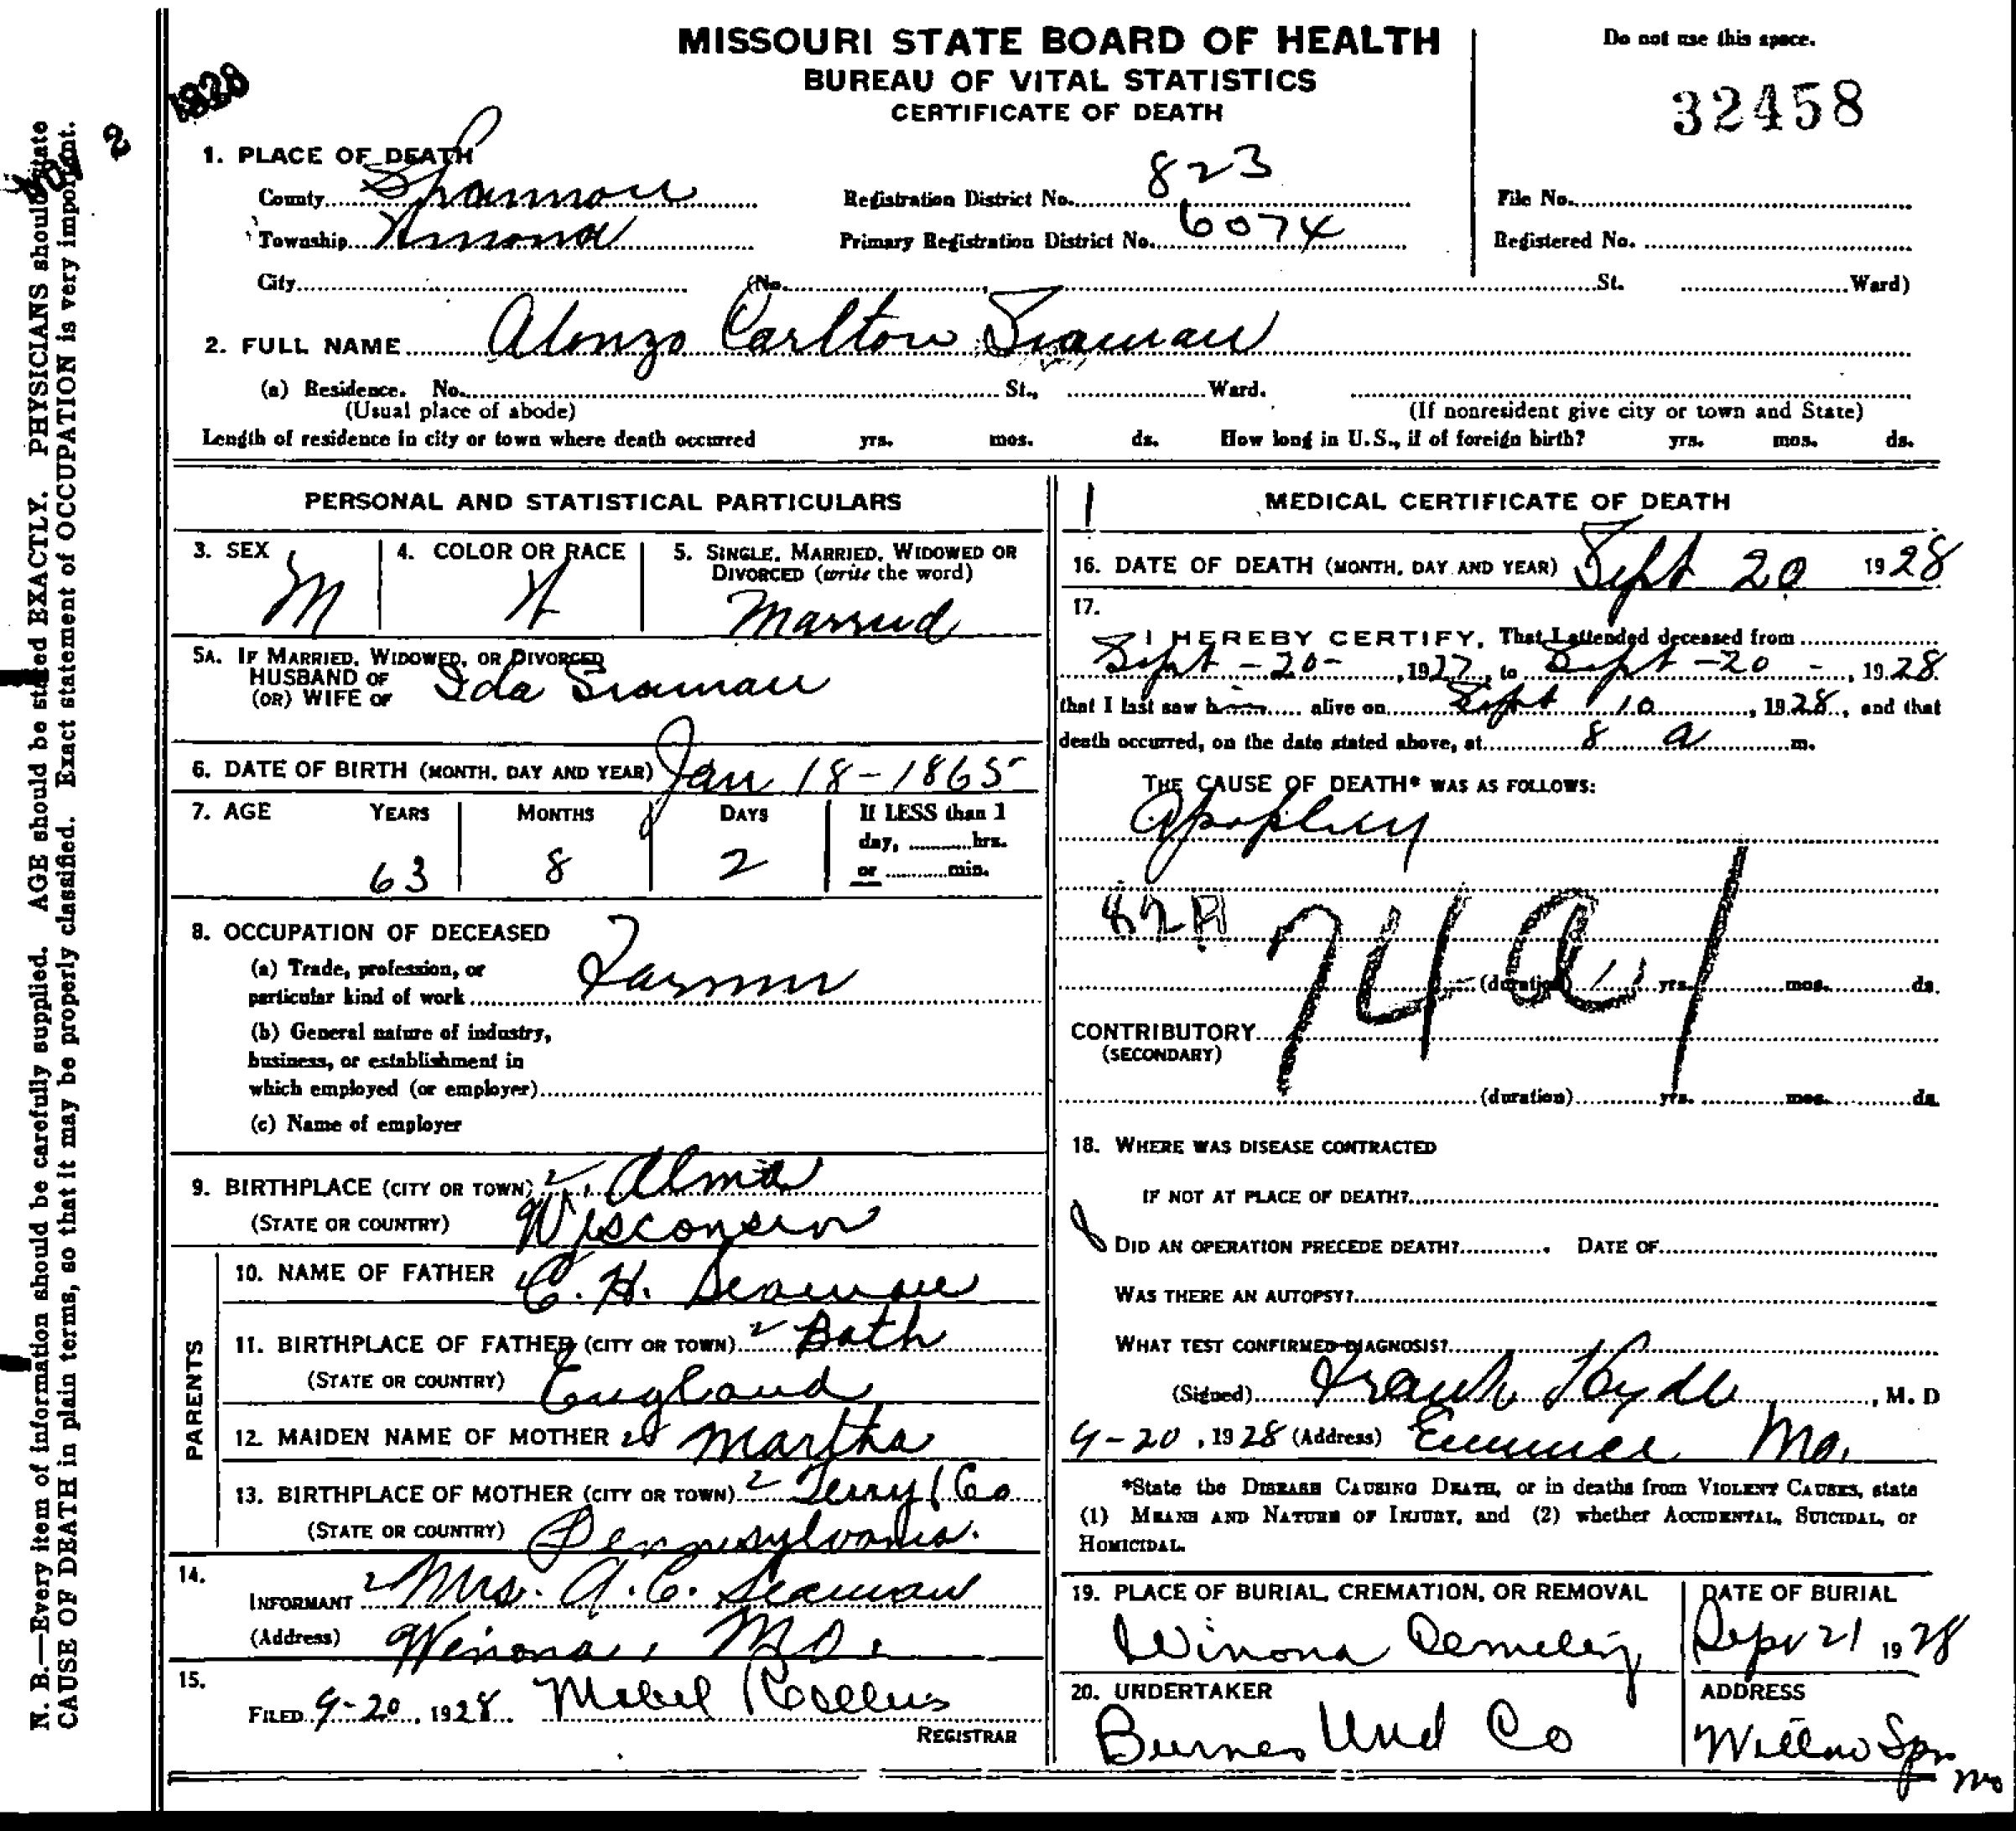 MISSOURI STATE BOARD OF HEALTH
BUREAU OF VITAL STATISTICS
CERTIFICATE OF DEATH
Do not use this space.
32458
1928
2
1. PLACE OF DEATH
County Shannon
Registration District No. 823
File No.
Township Winona
Primary Registration District No. 6074
Registered No.
City (No. , St. Ward)
2. FULL NAME Alonzo Carlton Seaman
(a) Residence. No. St., Ward.
(Usual place of abode) (If nonresident give city or town and State)
Length of residence in city or town where death occurred yrs. mos. ds. How long in U.S., if of foreign birth? yrs. mos. ds.
PERSONAL AND STATISTICAL PARTICULARS
3. SEX M
4. COLOR OR RACE W
5. SINGLE, MARRIED, WIDOWED OR
DIVORCED (write the word)
Married
5A. IF MARRIED, WIDOWED, OR DIVORCED
HUSBAND OF
(OR) WIFE OF Ida Seaman
6. DATE OF BIRTH (MONTH, DAY AND YEAR) Jan 18-1865
7. AGE YEARS MONTHS DAYS If LESS than 1
day, hrs.
or min.
63 8 2
8. OCCUPATION OF DECEASED
(a) Trade, profession, or
particular kind of work Farmer
(b) General nature of industry,
business, or establishment in
which employed (or employer)
(c) Name of employer
9. BIRTHPLACE (CITY OR TOWN) Alma
(STATE OR COUNTRY) Wisconsin
PARENTS
10. NAME OF FATHER C. H. Seaman
11. BIRTHPLACE OF FATHER (CITY OR TOWN) Bath
(STATE OR COUNTRY) England
12. MAIDEN NAME OF MOTHER Martha
13. BIRTHPLACE OF MOTHER (CITY OR TOWN) Terry Co
(STATE OR COUNTRY) Pennsylvania.
14.
INFORMANT Mrs. A. C. Seaman
(Address) Winona, Mo.
15.
FILED 9-20, 1928 Mabel Rollins
REGISTRAR
MEDICAL CERTIFICATE OF DEATH
16. DATE OF DEATH (MONTH, DAY AND YEAR) Sept 20 1928
17.
I HEREBY CERTIFY, That I attended deceased from
Sept-20-, 1927, to Sept-20-, 1928
that I last saw him alive on Sept 10, 1928, and that
death occurred, on the date stated above, at 8 a m.
THE CAUSE OF DEATH* WAS AS FOLLOWS:
Apoplexy
82A
74 a
(duration) yrs. mos. ds.
CONTRIBUTORY
(SECONDARY)
(duration) yrs. mos. ds.
18. WHERE WAS DISEASE CONTRACTED
IF NOT AT PLACE OF DEATH?
DID AN OPERATION PRECEDE DEATH? DATE OF
WAS THERE AN AUTOPSY?
WHAT TEST CONFIRMED DIAGNOSIS?
(Signed) Frank Hyde, M. D
9-20, 1928 (Address) Eminence Mo.
*State the DISEASE CAUSING DEATH, or in deaths from VIOLENT CAUSES, state
(1) MEANS AND NATURE OF INJURY, and (2) whether ACCIDENTAL, SUICIDAL, or
HOMICIDAL.
19. PLACE OF BURIAL, CREMATION, OR REMOVAL
Winona Cemetery
DATE OF BURIAL
Sept 21 1928
20. UNDERTAKER
Burnes Und Co
ADDRESS
Willow Spr
Mo
N. B.—Every item of information should be carefully supplied. AGE should be stated EXACTLY. PHYSICIANS should state
CAUSE OF DEATH in plain terms, so that it may be properly classified. Exact statement of OCCUPATION is very important.